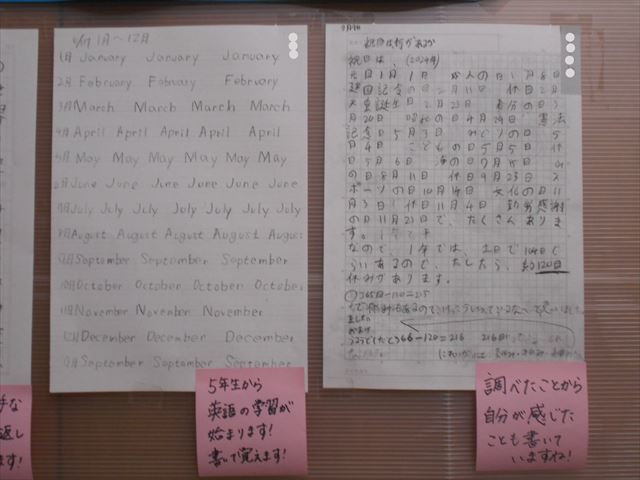 6/17 1月～12月
1月 January January January
2月 February February February
3月 March March March March
4月 April April April April April
5月 May May May May May May
6月 June June June June June June
7月 July July July July July July
8月 August August August August August
9月 September September September
10月 October October October October
11月 November November November
12月 December December December
9月 September September September
5年生から
英語の学習が
始まります!
書いて覚えます!
祝日は何があるか
祝日は、(2024年)
元日1月1日 成人の日1月8日
建国記念の日2月11日 休日2月
天皇誕生日2月23日 春分の日3
月20日 昭和の日4月29日 憲法
記念日5月3日 みどりの日5
月4日 こどもの日5月5日 休
日5月6日 海の日7月15日 山
の日8月11日 休日9月23日 ス
ポーツの日10月14日 文化の日11
月3日 休日11月4日 勤労感謝
の日11月23日で、たくさんありま
す。
なので、1年では、土日で104日く
らいあるので、たしたら、約120日
休みがあります。
366-120=
調べたことから
自分が感じた
ことも書いて
いますね!